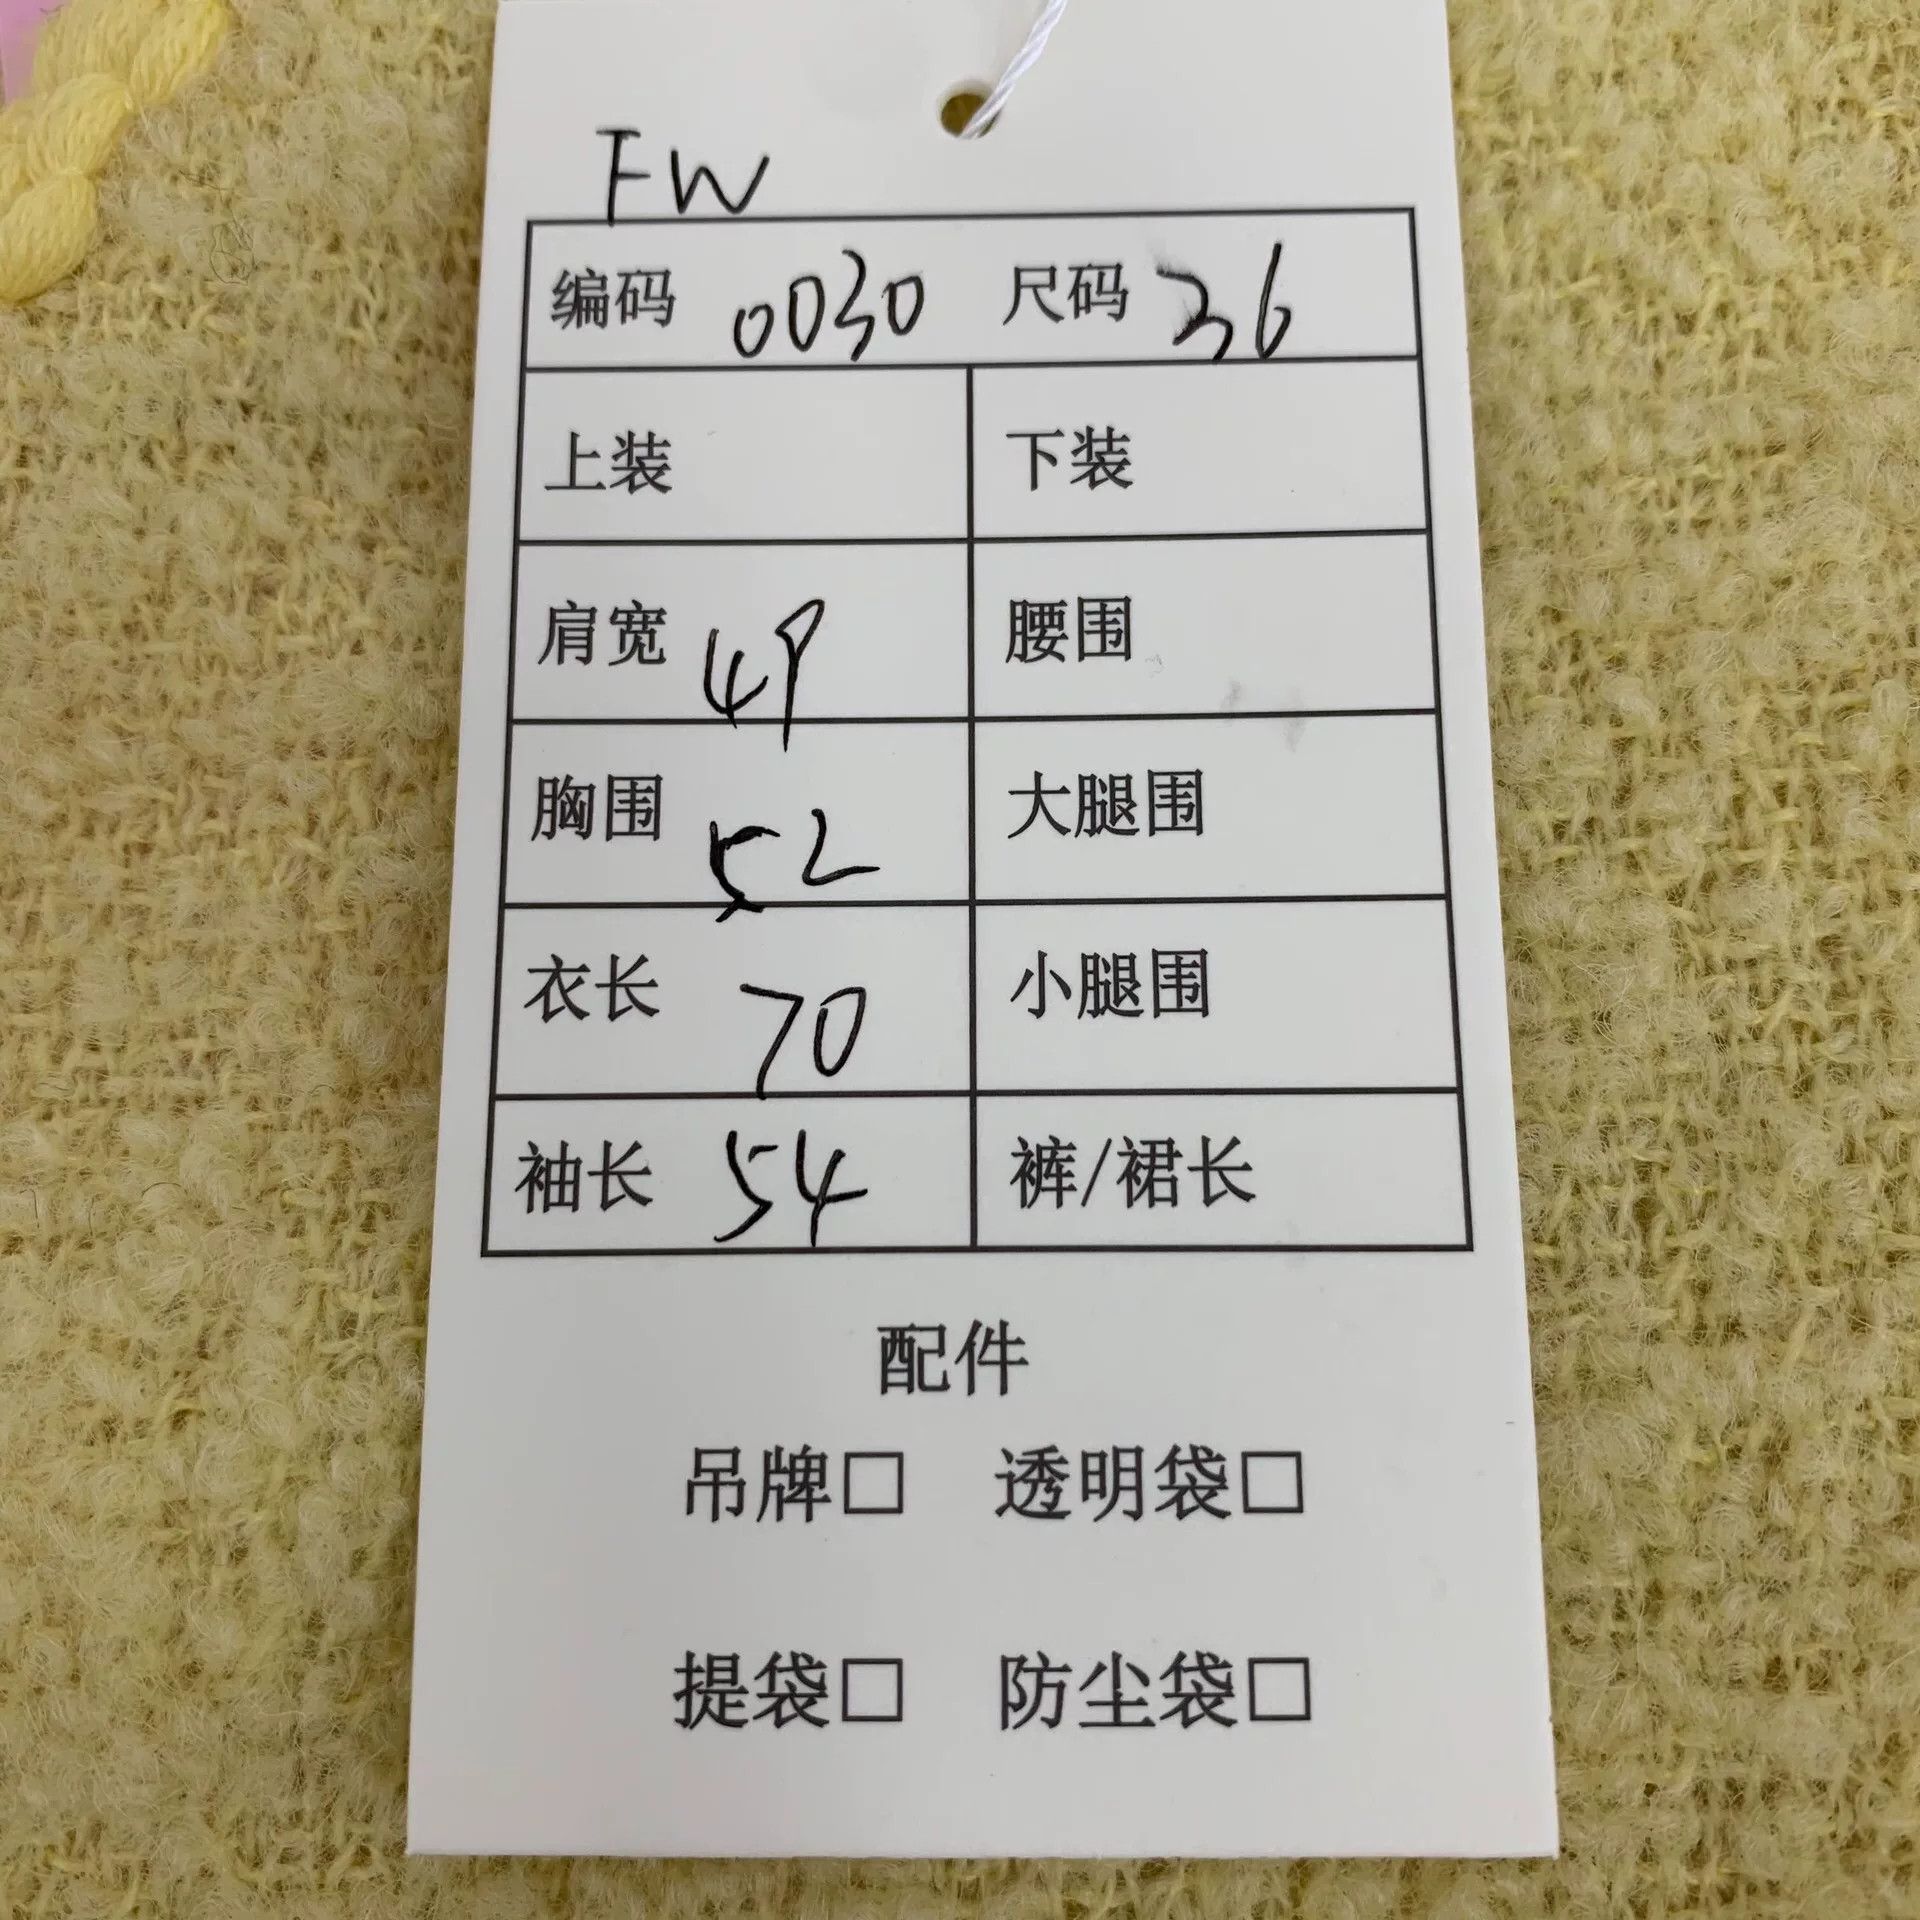 FW
编码 0030 尺码 36
上装 下装
肩宽 49 腰围
胸围 52 大腿围
衣长 70 小腿围
袖长 54 裤/裙长
配件
吊牌□ 透明袋□
提袋□ 防尘袋□